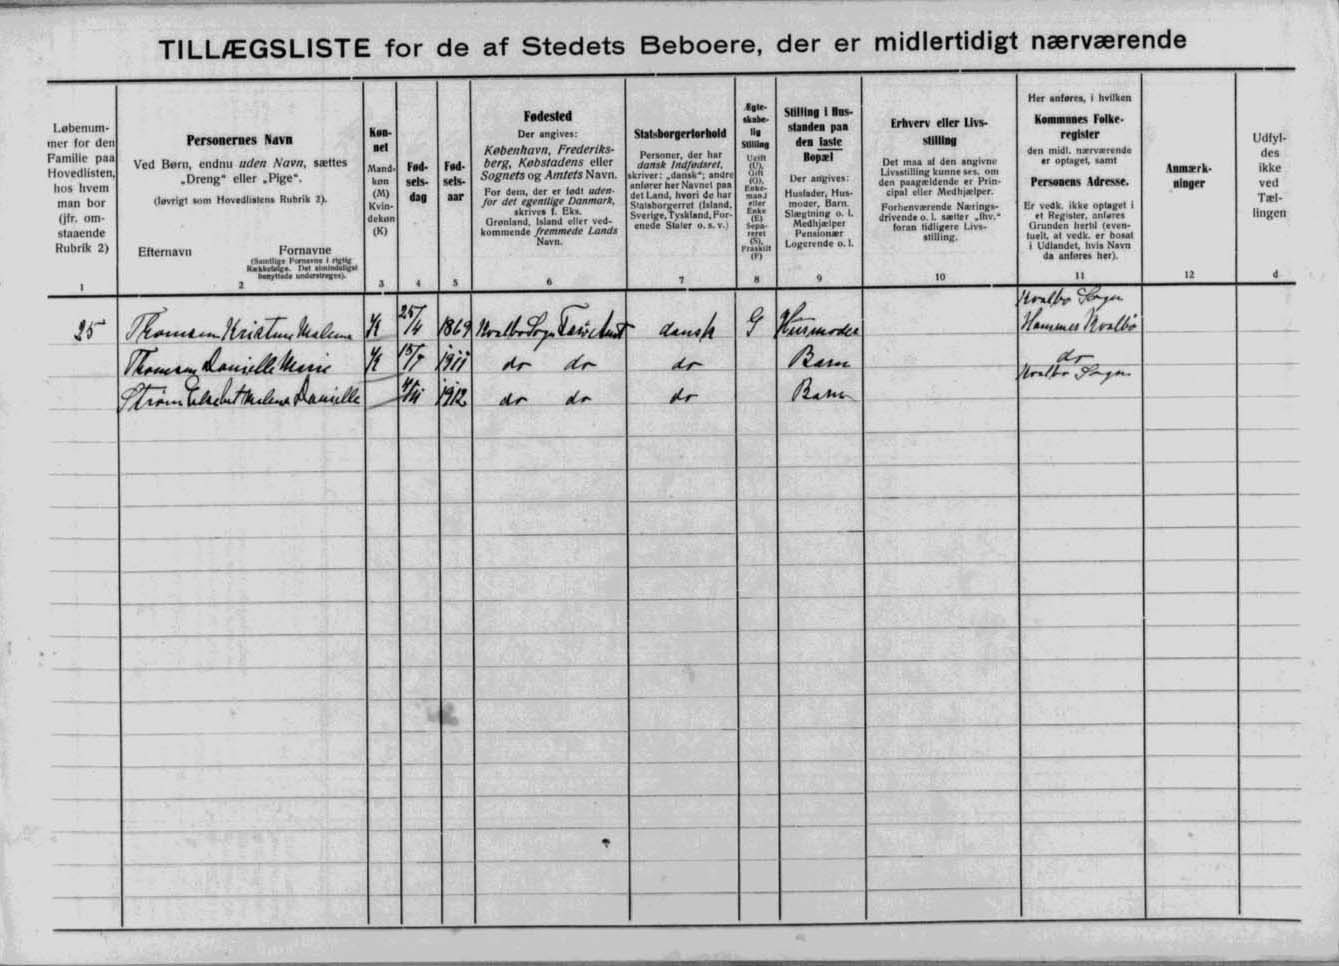 TILLÆGSLISTE for de af Stedets Beboere, der er midlertidigt nærværende
Løbenum-
mer for den
Familie paa
Hovedlisten,
hos hvem
man bor
(jfr. om-
staaende
Rubrik 2)
1
Personernes Navn
Ved Børn, endnu uden Navn, sættes
„Dreng“ eller „Pige“.
(Iøvrigt som Hovedlistens Rubrik 2).
Efternavn Fornavne
(Samtlige Fornavne i rigtig
Rækkefølge. Det almindeligst
benyttede understreges).
2
Køn-
net
Mand-
køn
(M)
Kvin-
dekøn
(K)
3
Fød-
sels-
dag
4
Fød-
sels-
aar
5
Fødested
Der angives:
København, Frederiks-
berg, Købstadens eller
Sognets og Amtets Navn.
For dem, der er født uden-
for det egentlige Danmark,
skrives f. Eks.
Grønland, Island eller ved-
kommende fremmede Lands
Navn.
6
Statsborgerforhold
Personer, der har
dansk Indfødsret,
skriver: „dansk“; andre
anfører her Navnet paa
det Land, hvori de har
Statsborgerret (Island,
Sverige, Tyskland, For-
enede Stater o. s. v.)
7
Ægte-
skabe-
lig
Stilling
Ugift
(U),
Gift
(G),
Enke-
mand
eller
Enke
(E)
Sepa-
reret
(S),
Fraskilt
(F)
8
Stilling i Hus-
standen paa
den faste
Bopæl
Der angives:
Husfader, Hus-
moder, Barn.
Slægtning o. l.
Medhjælper
Pensionær
Logerende o. l.
9
Erhverv eller Livs-
stilling
Det maa af den angivne
Livsstilling kunne ses, om
den paagældende er Prin-
cipal eller Medhjælper.
Forhenværende Nærings-
drivende o. l. sætter „fhv.“
foran tidligere Livs-
stilling.
10
Her anføres, i hvilken
Kommunes Folke-
register
den midl. nærværende
er optaget, samt
Personens Adresse.
Er vedk. ikke optaget i
et Register, anføres
Grunden hertil (even-
tuelt, at vedk. er bosat
i Udlandet, hvis Navn
da anføres her).
11
Anmærk-
ninger
12
Udfyl-
des
ikke
ved
Tæl-
lingen
d
Kvalbø Sogn
25 Thomsen Kristine Malene K 25/4 1869 Kvalbø Sogn Færø Amt dansk G Husmoder Hammer Kvalbø
Thomsen Danielle Marie K 15/7 1911 do do do Barn do
Kvalbø Sogn
Strøm Elsebet Malene Danielle 1912 do do do Barn